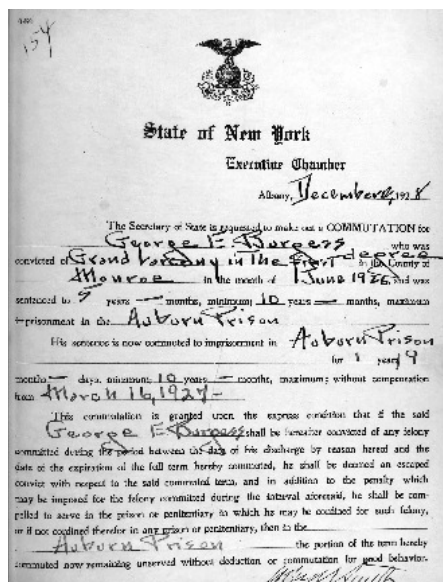 154
State of New York
Executive Chamber
Albany, December 1928
The Secretary of State is requested to make out a COMMUTATION for
George E. Burgess who was
convicted of Grand Larceny in the first degree in the County of
Monroe in the month of June 1926 and was
sentenced to 5 years — months, minimum; 10 years — months, maximum
imprisonment in the Auburn Prison
His sentence is now commuted to imprisonment in Auburn Prison
for 1 year, 9
months — days, minimum; 10 years — months, maximum; without compensation
from March 16, 1927-
This commutation is granted upon the express condition that if the said
George E. Burgess shall be hereafter convicted of any felony
committed during the period between the date of his discharge by reason hereof and the
date of the expiration of the full term hereby commuted, he shall be deemed an escaped
convict with respect to the said commuted term, and in addition to the penalty which
may be imposed for the felony committed during the interval aforesaid, he shall be com-
pelled to serve in the prison or penitentiary in which he may be confined for such felony,
or if not confined therefor in any prison or penitentiary, then in the
Auburn Prison the portion of the term hereby
commuted now remaining unserved without deduction or commutation for good behavior.